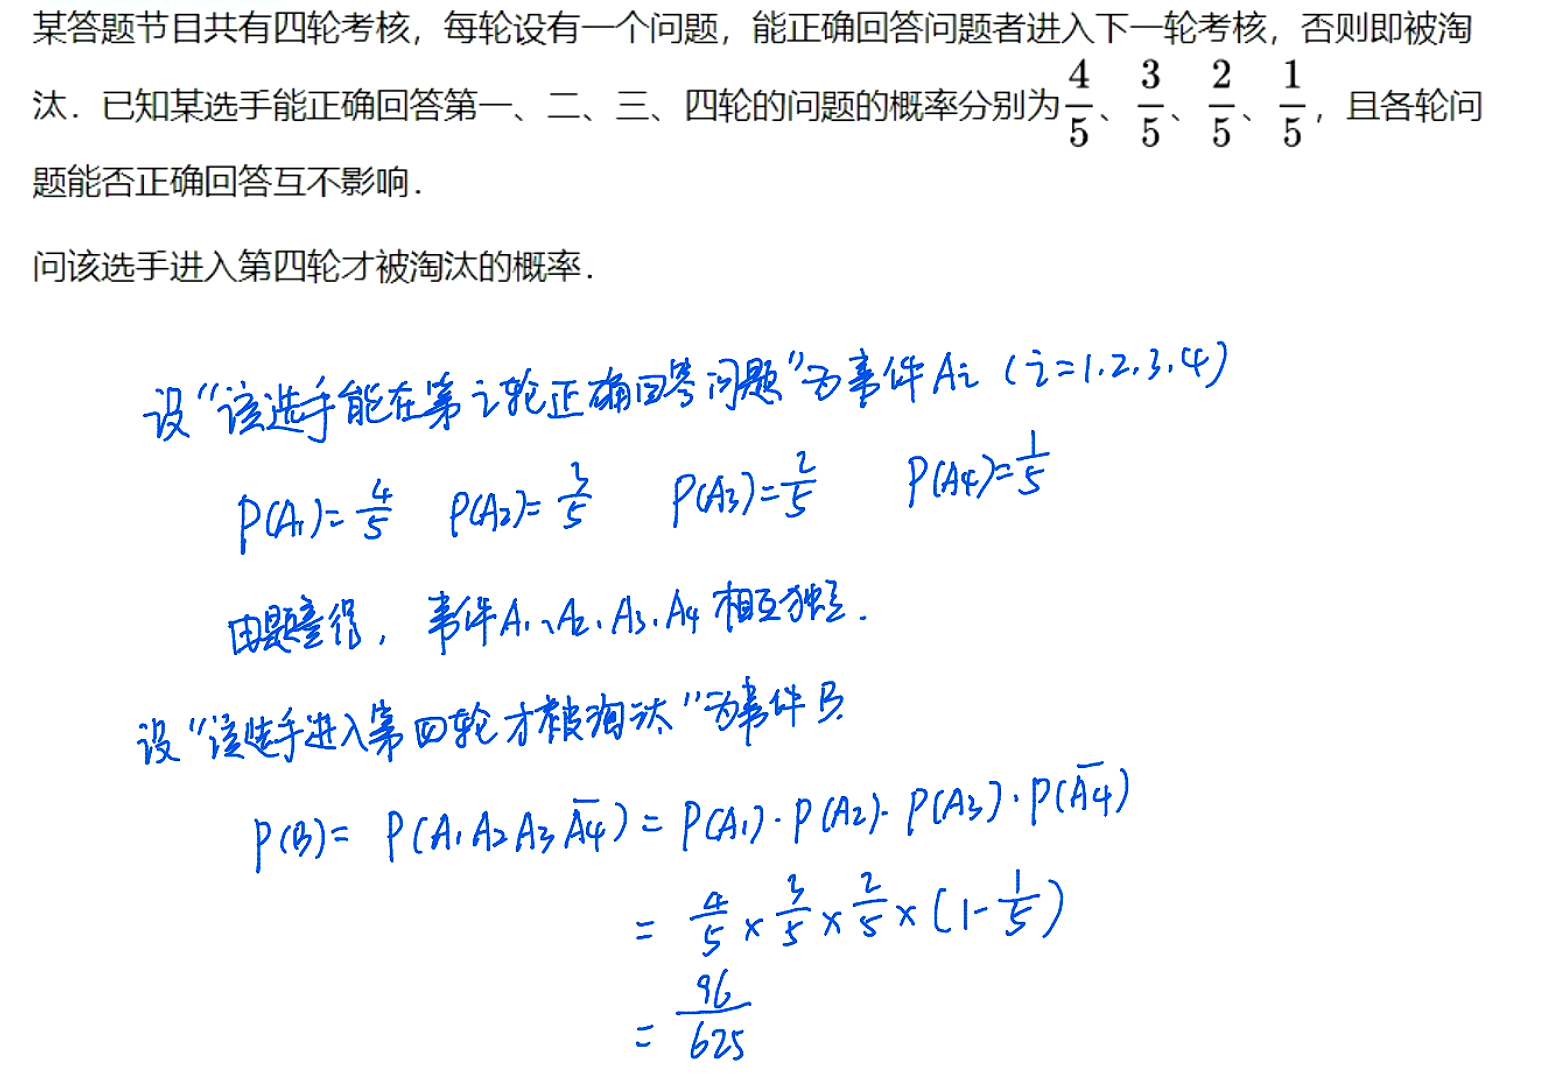 某答题节目共有四轮考核，每轮设有一个问题，能正确回答问题者进入下一轮考核，否则即被淘
汰．已知某选手能正确回答第一、二、三、四轮的问题的概率分别为4/5、3/5、2/5、1/5，且各轮问
题能否正确回答互不影响．
问该选手进入第四轮才被淘汰的概率．
设“该选手能在第i轮正确回答问题”为事件Ai（i=1.2.3.4）
P(A₁)=4/5 P(A₂)=3/5 P(A₃)=2/5 P(A₄)=1/5
由题意得，事件A₁、A₂、A₃、A₄相互独立．
设“该选手进入第四轮才被淘汰”为事件B.
P(B)= P(A₁A₂A₃A̅₄) = P(A₁)·P(A₂)·P(A₃)·P(A̅₄)
= 4/5 × 3/5 × 2/5 × (1-1/5)
= 96/625